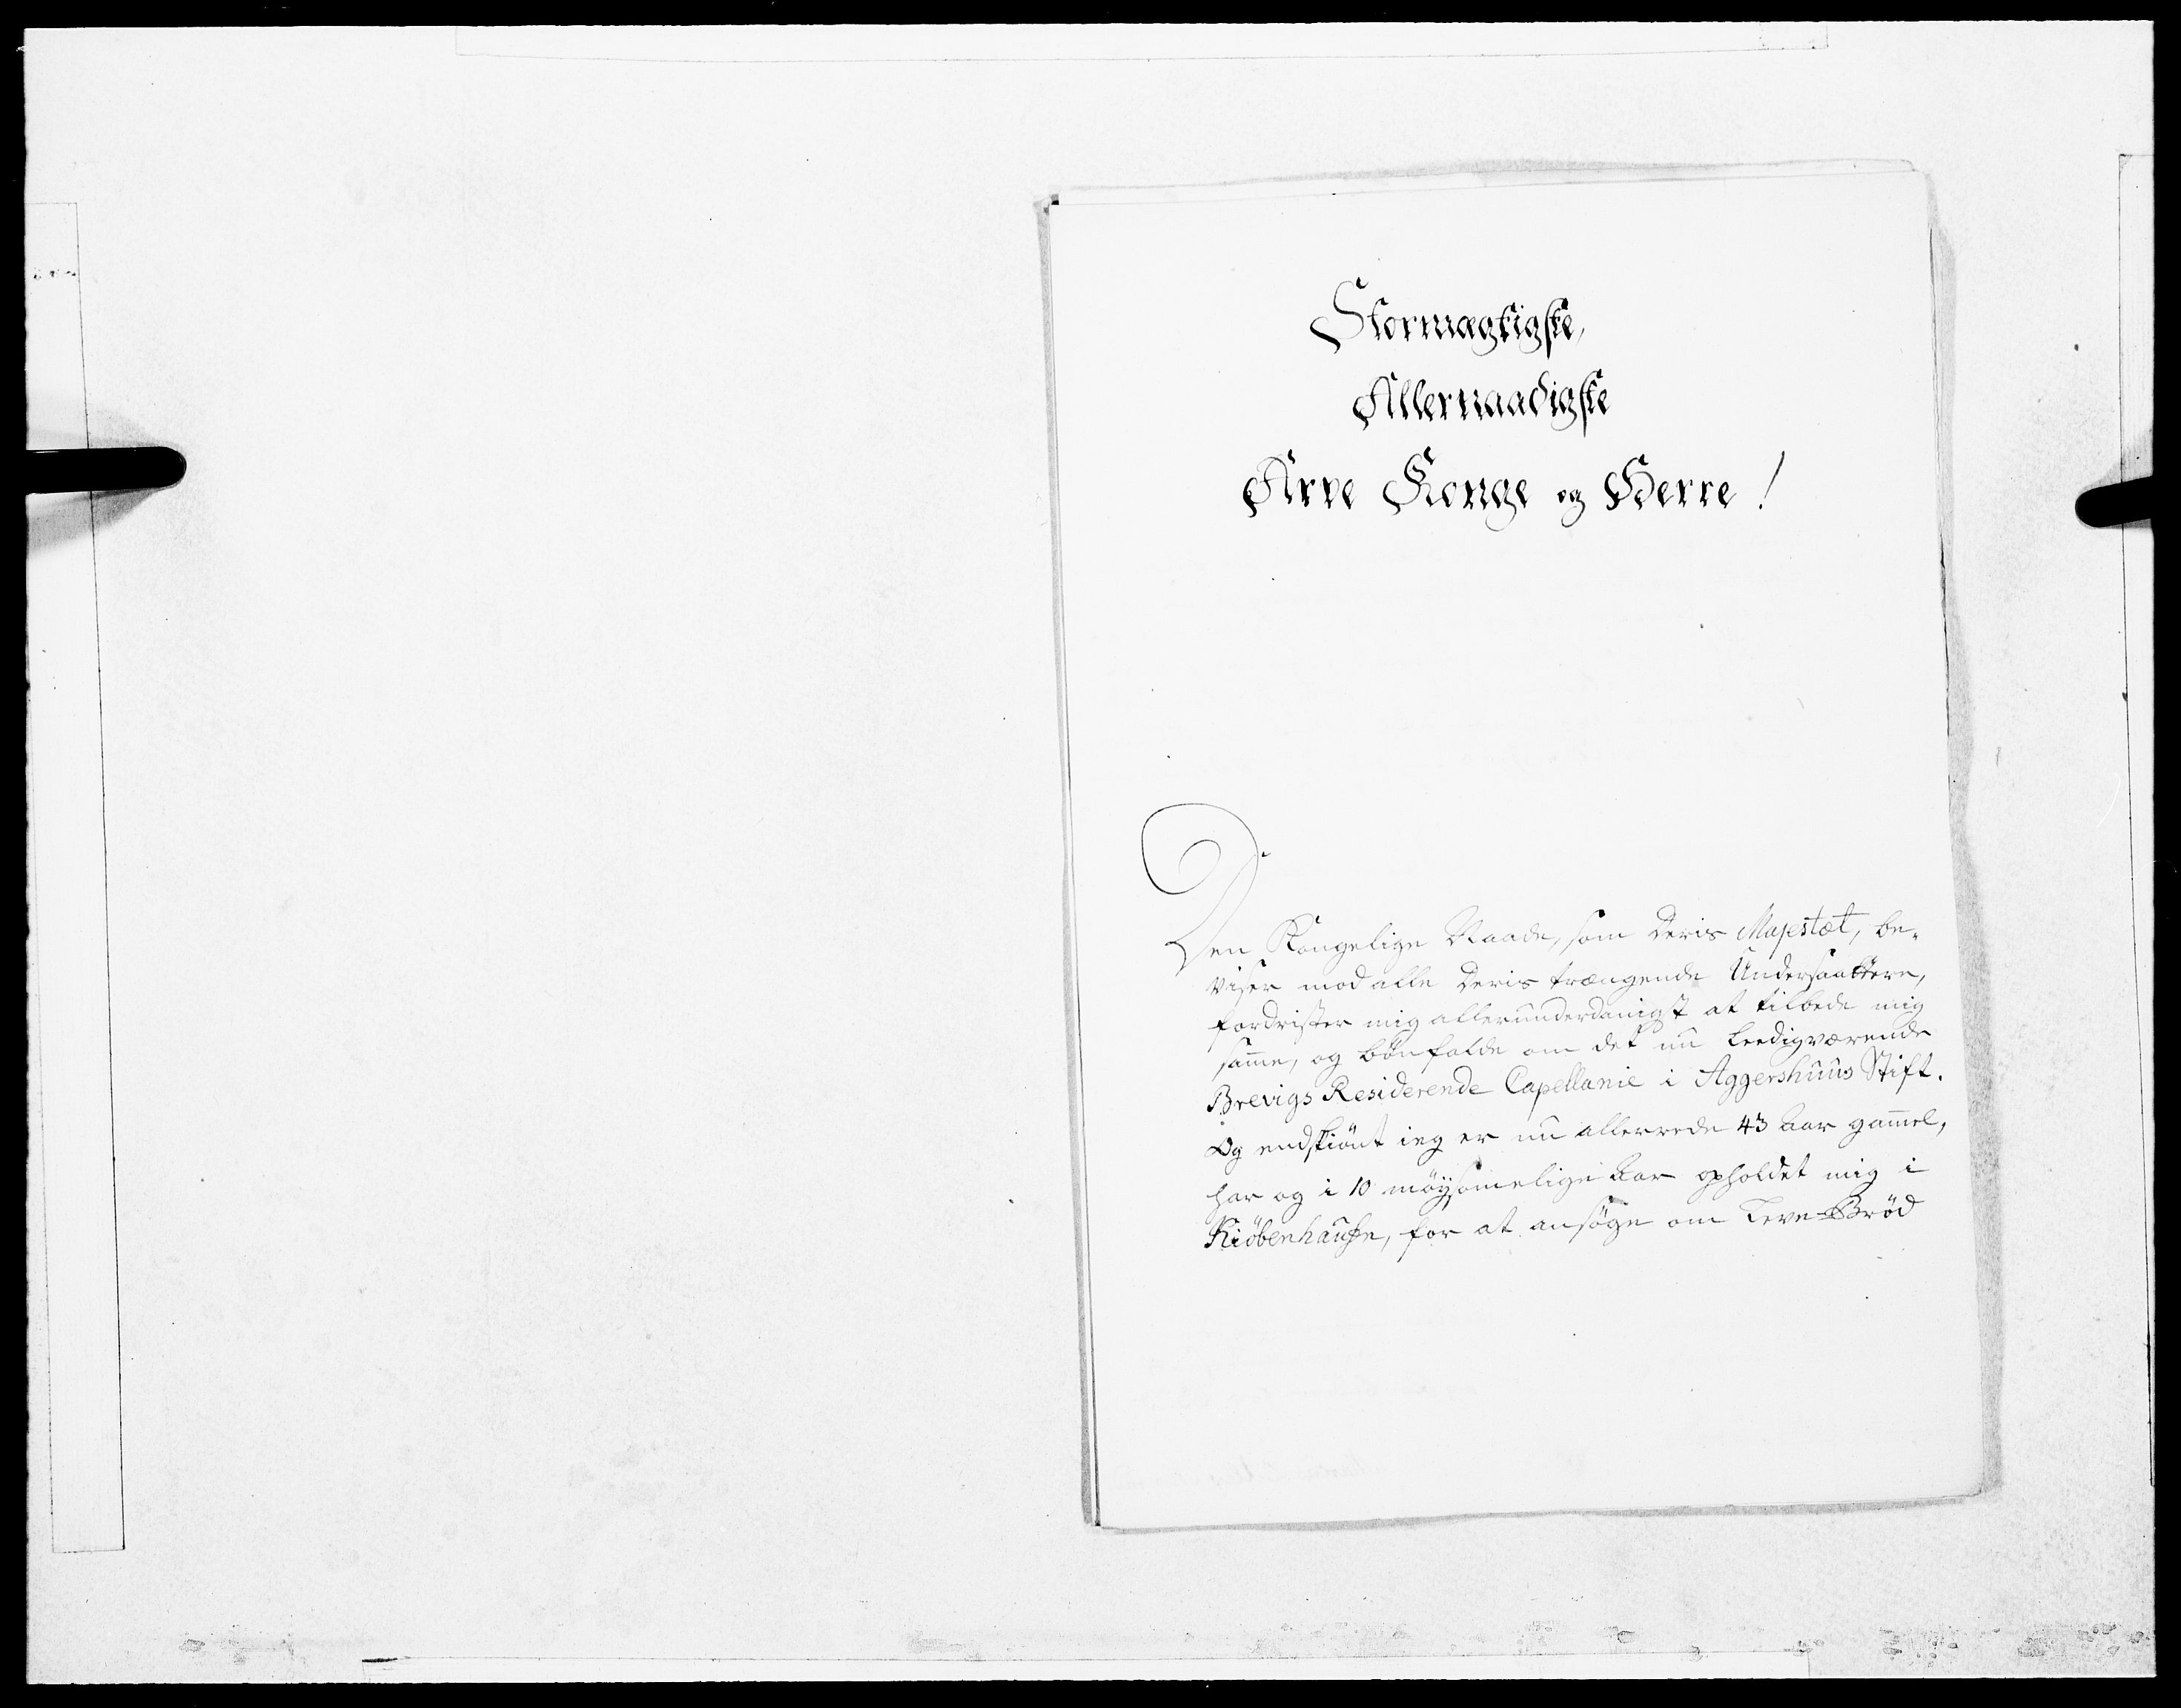 Stormægtigste,
Allernaadigste
Arve Konge og Herre!
Den Kongelige Naade, som Deris Majestæt, be-
viser mod alle Deris trængende Undersaattere,
fordrister mig allerunderdanigst at tilbede mig
samme, og bönfalde om det nu Leedigværende
Brevigs Residerende Capellanie i Aggershuus Stift.
Og endskiönt ieg er nu allerrede 43 Aar gammel,
har og i 10 möysommelige Aar opholdet mig i
Kiöbenhaufn, for at ansöge om Leve-Bröd